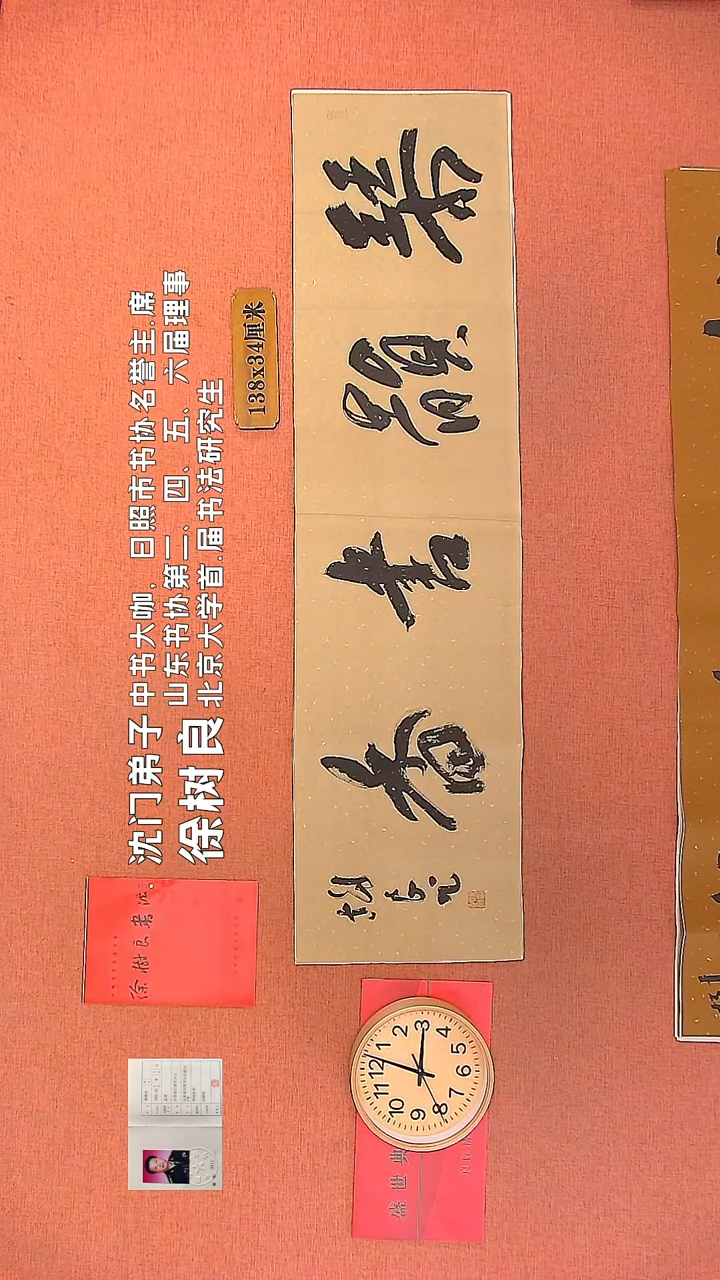 沈门弟子 中书大咖，日照市书协名誉主.席
山东书协第二、四、五、六届理事
徐树良 北京大学首.届书法研究生
138x34厘米
琴韻書香
树良
徐树良书法
盛世典
12 1 2 3 4 5 6 7 8 9 10 11